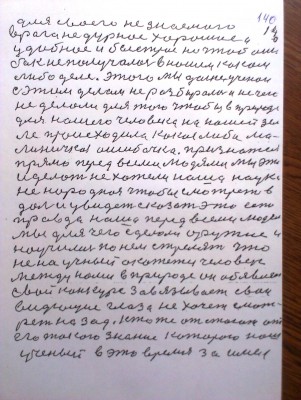 140
для своего не знаемого
врага не дурное хорошее а
удобное и быстрое но чтобы они
так не получалось в нашем каком
либо деле. Этого мы
с этим делом не разбирались и нечего
не делали для того чтобы в природе
для нашего человека на нашей зем
ле происходила какая либо ма
ленькая ошибочка. признаться
прямо перед всеми людями мы это
и делать не хотели наша наука
не народная чтобы смотреть в
даль и увидеть сказать это есть
правда наша перед всеми людями
мы для чего сделали оружие и
научились по нем стрелять что
не научный скажет человек
между нами в природе он объявляет
свой конкурс завязывает свои
видющие глаза не хочет смот
реть назад. Кто же от
его такого знание которого наш
ученый в это время за имел